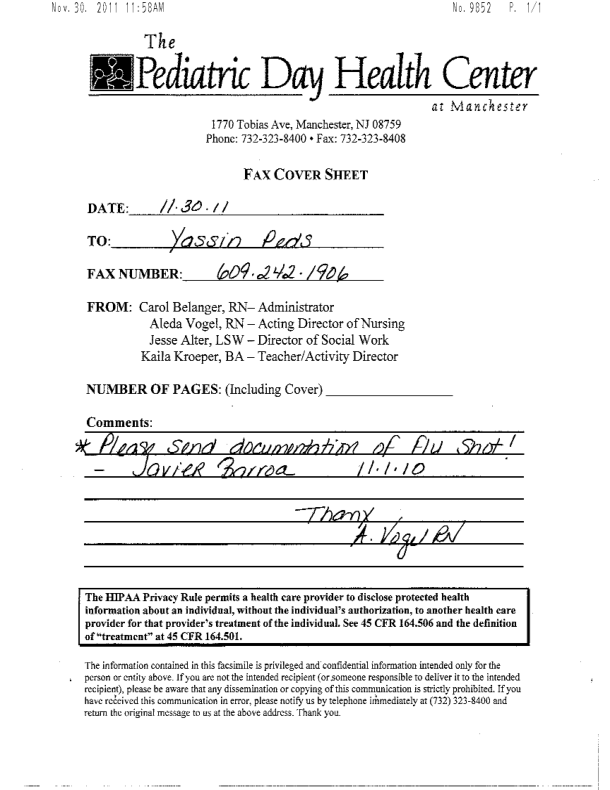 Nov. 30. 2011 11:58AM No. 9852 P. 1/1
The
Pediatric Day Health Center
at Manchester
1770 Tobias Ave, Manchester, NJ 08759
Phone: 732-323-8400 • Fax: 732-323-8408
FAX COVER SHEET
DATE: 11.30.11
TO: Yassin Peds
FAX NUMBER: 609.242.1906
FROM: Carol Belanger, RN– Administrator
Aleda Vogel, RN – Acting Director of Nursing
Jesse Alter, LSW – Director of Social Work
Kaila Kroeper, BA – Teacher/Activity Director
NUMBER OF PAGES: (Including Cover)
Comments:
* Please send documentation of flu shot!
– Javier Barroa 11.1.10
Thanx,
A. Vogel RN
The HIPAA Privacy Rule permits a health care provider to disclose protected health
information about an individual, without the individual's authorization, to another health care
provider for that provider's treatment of the individual. See 45 CFR 164.506 and the definition
of "treatment" at 45 CFR 164.501.
The information contained in this facsimile is privileged and confidential information intended only for the
person or entity above. If you are not the intended recipient (or someone responsible to deliver it to the intended
recipient), please be aware that any dissemination or copying of this communication is strictly prohibited. If you
have received this communication in error, please notify us by telephone immediately at (732) 323-8400 and
return the original message to us at the above address. Thank you.